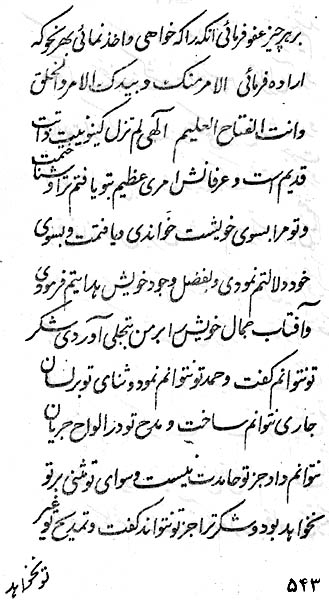 بر هر چیز عفو فرمائی آنکه را که خواهی و اخذ نمائی بهر نحو که
اراده فرمائی الامر منک و بیدک لک الامر و الخلق
و انت الفتاح العلیم الهی لم تزل کینونیت ذات
قدیم است و عرفانش امری عظیم بتو یافتم ترا و شناختمت
و تو مرا بسوی خویشت خواندی و یافتمت و بسوی
خود دلالتم نمودی و بفضل وجود خویش هدایتم فرمودی
و آفتاب جمال خویش را بر من تجلی آوردی شکر
تو نتوانم گفت و حمد تو نتوانم نمود و ثنای تو بر لسان
جاری نتوانم ساخت و مدح تو در الواح جریان
نتوانم داد جز تو حامدت نیست و سوای تو مثنی بر تو
نخواهد بود و شکر ترا جز تو نتواند گفت و تمدیح تو غیر
تو نخواهد
۵۴۳